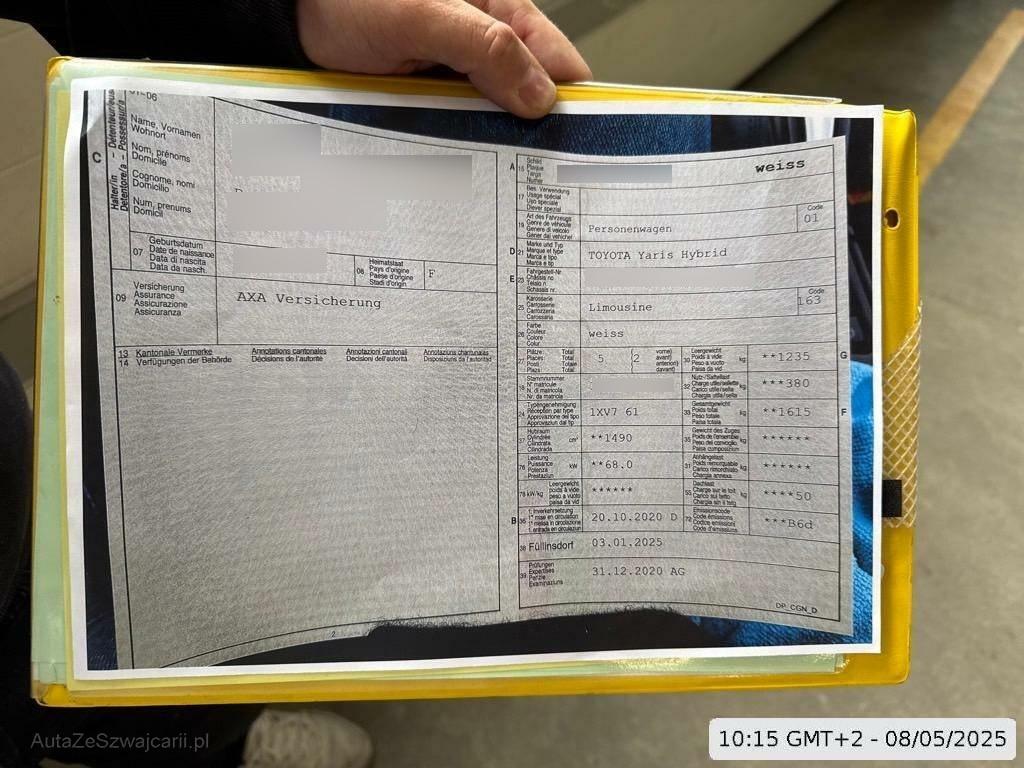 01-06
C
Halter/in - Détenteur/euse
Detentore/a - Possessur/a
Name, Vornamen
Wohnort
Nom, prénoms
Domicile
Cognome, nomi
Domicilio
Num, prenums
Domicil
07
Geburtsdatum
Date de naissance
Data di nascita
Data da nasch.
08
Heimatstaat
Pays d'origine
Paese d'origine
Stadi d'origin
F
09
Versicherung
Assurance
Assicurazione
Assicuranza
AXA Versicherung
13 Kantonale Vermerke
14 Verfügungen der Behörde
Annotations cantonales
Décisions de l'autorité
Annotazioni cantonali
Decisioni dell'autorità
Annotaziuns chantunalas
Disposiziuns da l'autoritad
2
A 15 Schild
Plaque
Targa
Numer
weiss
17 Bes. Verwendung
Usage spécial
Uso speciale
Diever spezial
19 Art des Fahrzeugs
Genre de véhicule
Genere di veicolo
Gener dal vehichel
Personenwagen
Code
01
D 21 Marke und Typ
Marque et type
Marca e tipo
Marca e tip
TOYOTA Yaris Hybrid
E 23 Fahrgestell-Nr.
Châssis no
Telaio n.
Schassis nr.
25 Karosserie
Carrosserie
Carrozzeria
Carossaria
Limousine
Code
163
26 Farbe
Couleur
Colore
Colur
weiss
27 Plätze: Total
Places: Total
Posti: Totale
Plazs: Total
5 (2
vorne)
avant)
anteriori)
davant)
30 Leergewicht
Poids à vide
Peso a vuoto
Paisa da vid
kg
**1235
G
18 Stammnummer
N° matricule
N. di matricola
Nr. da matricla
32 Nutz-/Sattellast
Charge utile/sellette
Carico utile/sella
Chargia utila/sella
kg
***380
24 Typengenehmigung
Réception par type
Approvazione del tipo
Approvaziun dal tip
1XV7 61
33 Gesamtgewicht
Poids total
Peso totale
Paisa totala
kg
**1615
F
37 Hubraum
Cylindrée
Cilindrata
Cilindrada
cm³
**1490
35 Gewicht des Zuges
Poids de l'ensemble
Peso del convoglio
Paisa cumposiziun
kg
******
76 Leistung
Puissance
Potenza
Prestaziun
kW
**68.0
31 Anhängelast
Poids remorquable
Carico rimorchiabile
Chargia annexa
kg
******
78 kW/kg
Leergewicht
poids à vide
peso a vuoto
paisa da vid
******
55 Dachlast
Charge sur le toit
Carico sul tetto
Chargia sin il tetg
kg
****50
B 36 1. Inverkehrsetzung
1re mise en circulation
1a messa in circolazione
1. entrada en circulaziun
20.10.2020 D
72 Emissionscode
Code émissions
Codice emissioni
Code d'emissiuns
***B6d
38 Füllinsdorf
03.01.2025
39 Prüfungen
Expertises
Perizie
Examinaziuns
31.12.2020 AG
DP_CGN_D
AutaZeSzwajcarii.pl
10:15 GMT+2 - 08/05/2025